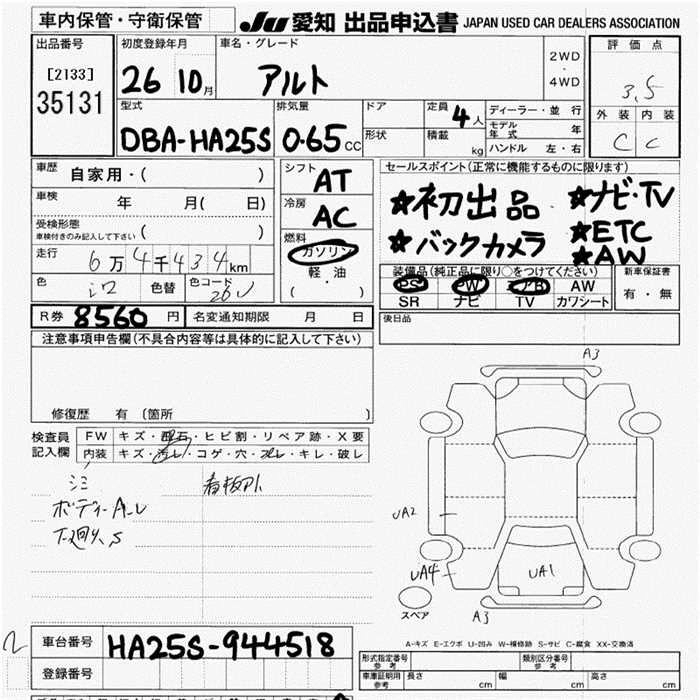 車内保管・守衛保管
JU 愛知 出品申込書 JAPAN USED CAR DEALERS ASSOCIATION
出品番号
[2133]
35131
初度登録年月
26 10月
車名・グレード
アルト
2WD
・
4WD
評価点
3.5
外装 内装
C C
型式
DBA-HA25S
排気量
0.65 CC
ドア
形状
定員
4人
積載
kg
ディーラー・並行
モデル年式 年
ハンドル 左・右
車歴
自家用・( )
車検
年 月( 日)
受検形態
車検付きのみ記入して下さい ( )
走行
6万4千434km
色
シロ
色替
色コード
26U
シフト
AT
冷房
AC
燃料
ガソリン
・
軽油
・
( )
セールスポイント(正常に機能するものに限ります)
★初出品
★バックカメラ
★ナビ・TV
★ETC
★AW
装備品(純正品に限り○をつけてください)
PS PW エアB AW
SR ナビ TV カワシート
新車保証書
有・無
R券 8560円
名変通知期限 月 日
後日品
注意事項申告欄(不具合内容等は具体的に記入して下さい)
修復歴 有(箇所 )
検査員
記入欄
FW キズ・飛石・ヒビ割・リペア跡・X要
内装 キズ・汚レ・コゲ・穴・スレ・キレ・破レ
シミ
ボディーA.U
下廻りS
看板アト
A3
UA2
UA4
UA1
A3
スペア
A-キズ E-エクボ U-凹み W-補修跡 S-サビ C-腐食 XX-交換済
2
車台番号
HA25S-944518
登録番号
形式指定番号
参考
類別区分番号
参考
車庫証明用
参考
長さ cm
幅 cm
高さ cm